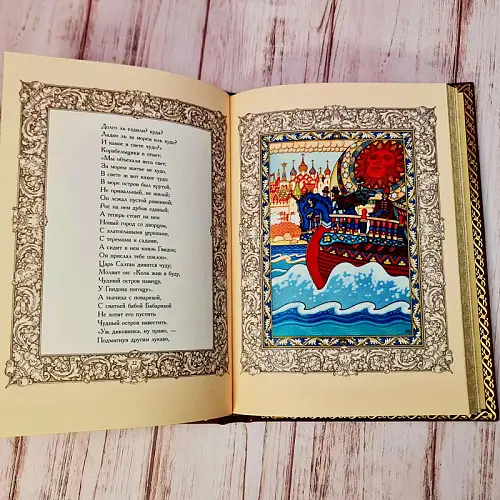 Долго ль ездили? куда?
Ладно ль за морем иль худо?
И какое в свете чудо?»
Корабельщики в ответ:
«Мы объехали весь свет;
За морем житье не худо,
В свете ж вот какое чудо:
В море остров был крутой,
Не привальный, не жилой;
Он лежал пустой равниной;
Рос на нем дубок единый;
А теперь стоит на нем
Новый город со дворцом,
С златоглавыми церквами,
С теремами и садами,
А сидит в нем князь Гвидон;
Он прислал тебе поклон».
Царь Салтан дивится чуду;
Молвит он: «Коль жив я буду,
Чудный остров навещу,
У Гвидона погощу».
А ткачиха с поварихой,
С сватьей бабой Бабарихой
Не хотят его пустить
Чудный остров навестить.
«Уж диковинка, ну право, —
Подмигнув другим лукаво,